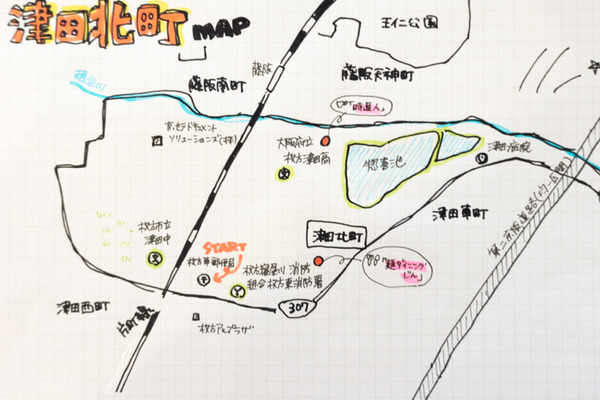 津田北町 MAP
王仁公園
藤阪
藤阪南町
藤阪天神町
穂谷川
京セラドキュメント
ソリューションズ(株)
大阪府立
枚方津田高
惣喜池
津田病院
津田東町
第二京阪道路
津田北町
枚方市立
津田中
START
枚方東郵便局
枚方寝屋川 消防
組合 枚方東消防署
麺ダイニング
じん
307
津田西町
片町線